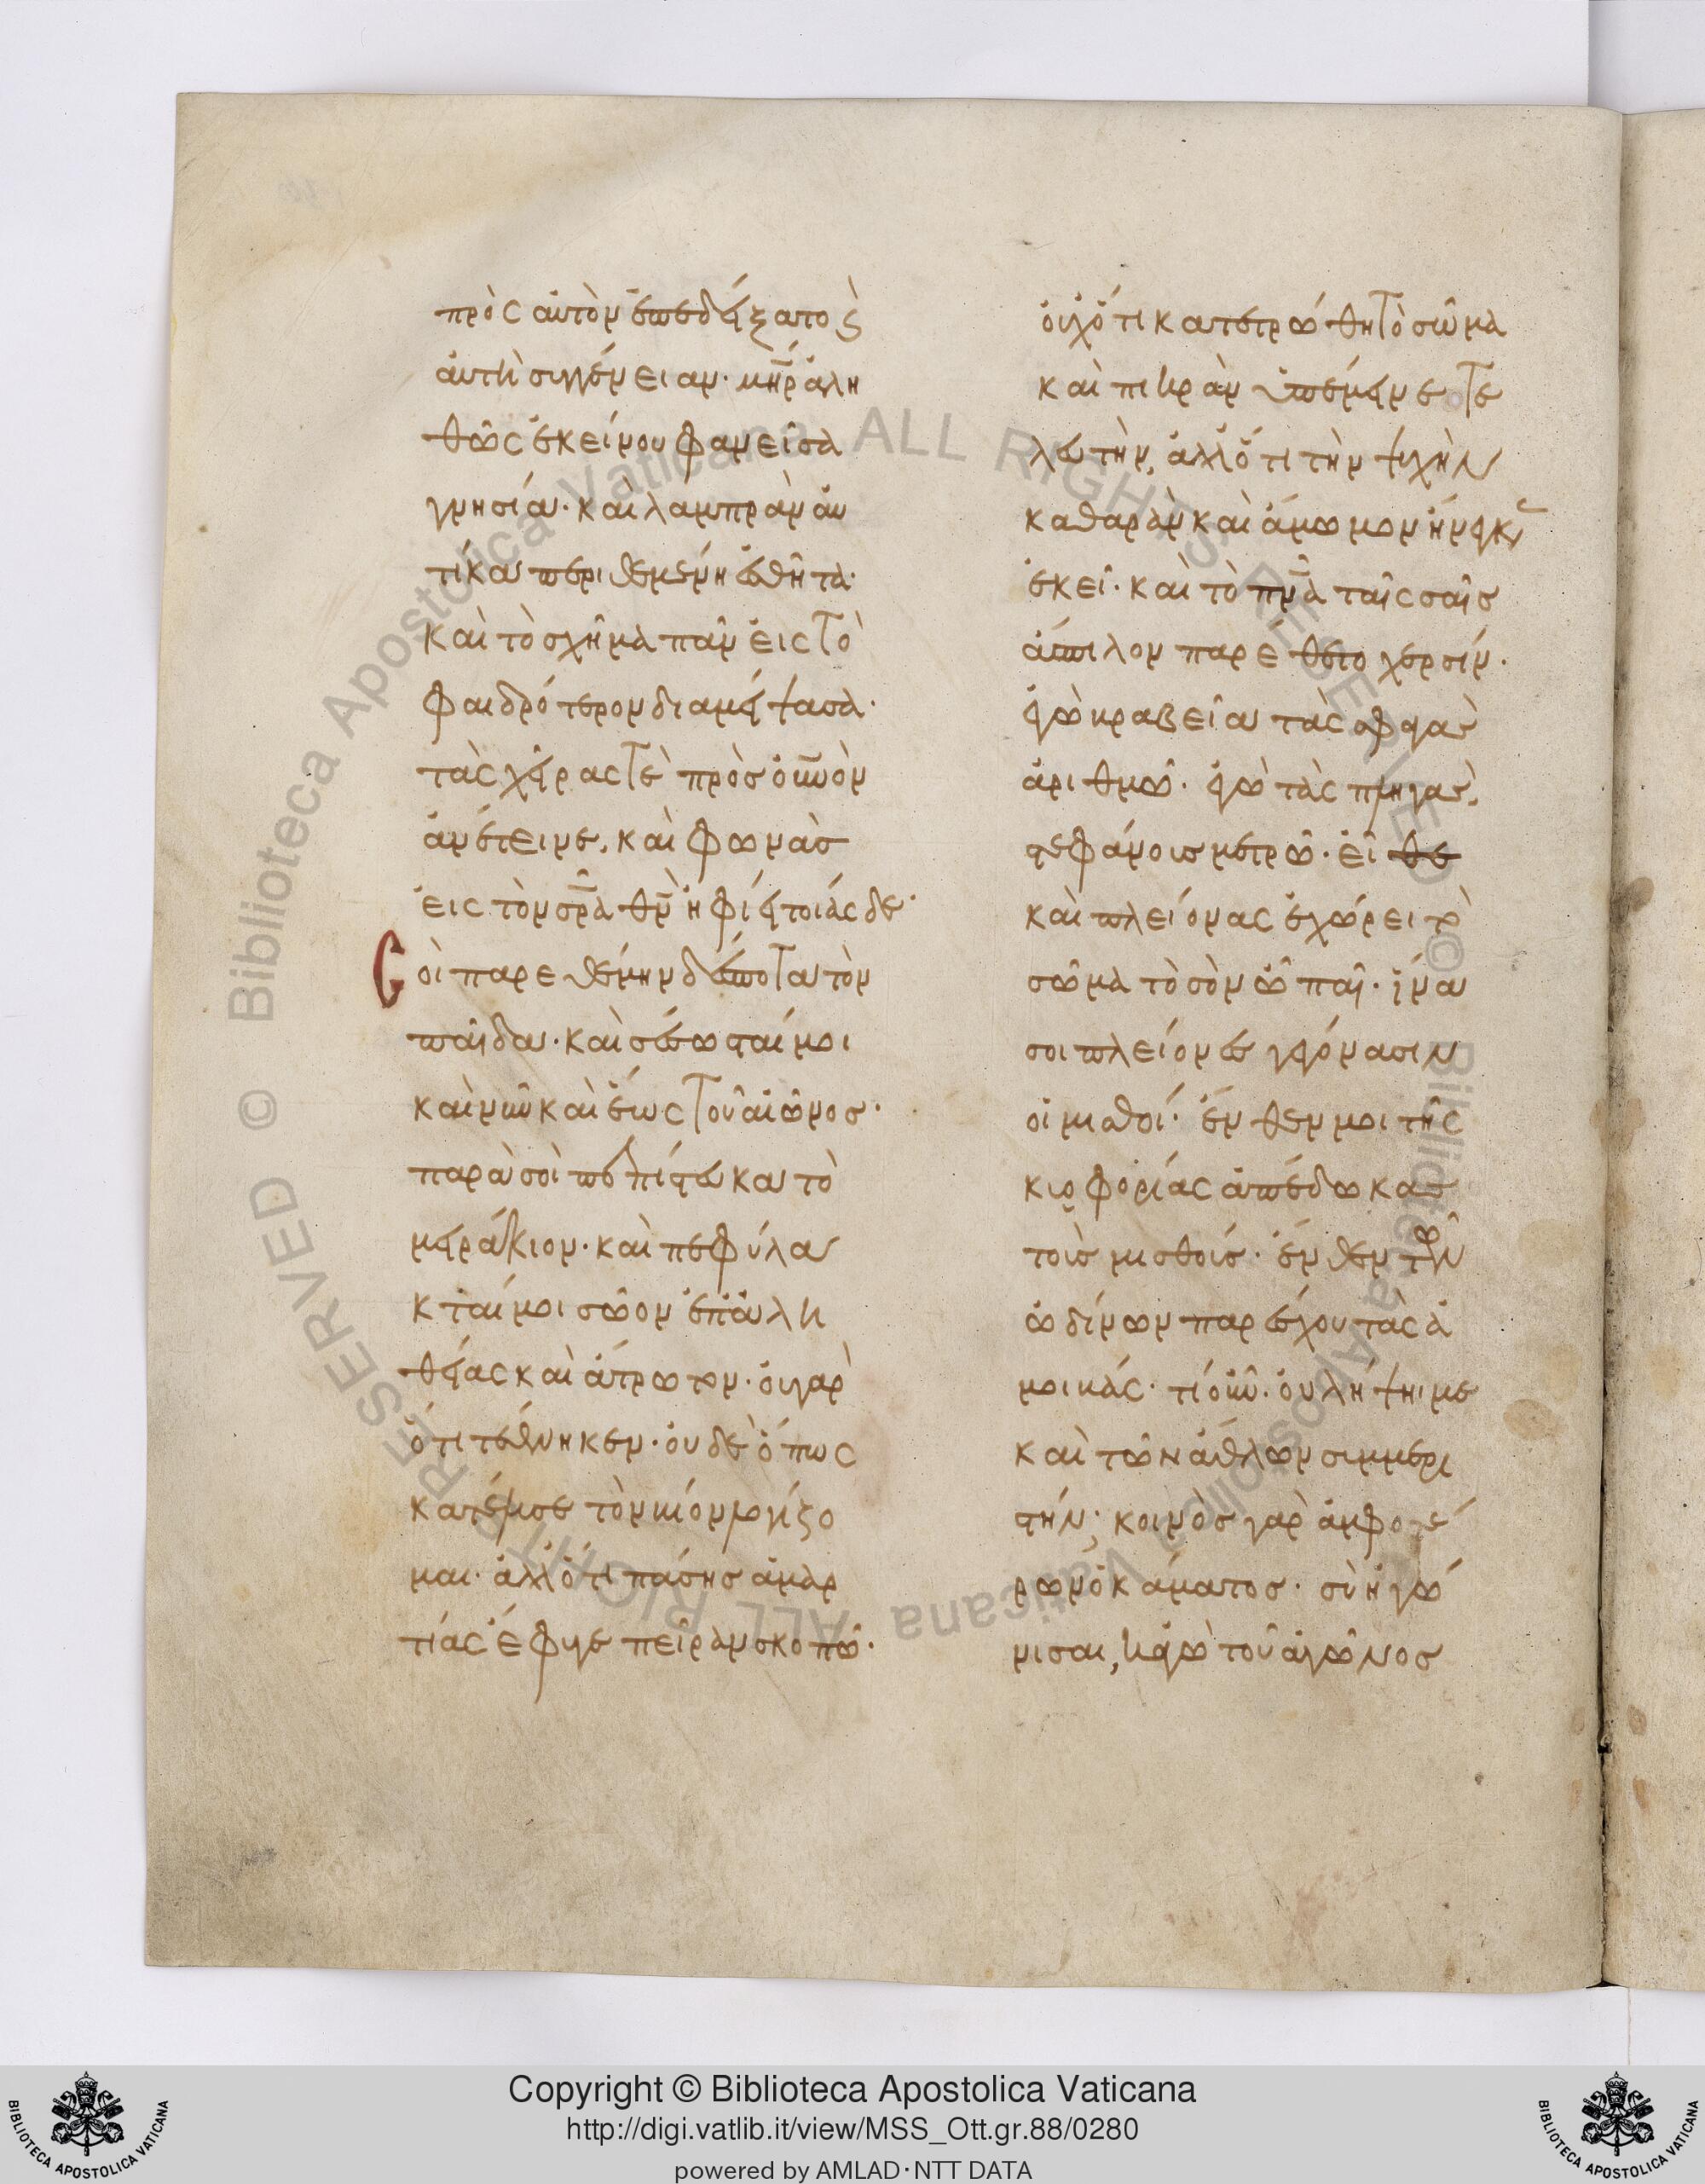 πρὸς αὐτὸν ἐπεδείξατο ϛ
αὐτὴ συγγένειαν· μηρ ἀλη
θῶς ἐκείνου φανεῖσα
γνησία· καὶ λαμπρὰν αὐ
τίκα περιθεμένη ἐσθῆτα·
καὶ τὸ σχῆμα πᾶν εἰς τὸ
φαιδρότερον διαμείψασα·
τὰς χεῖρας τὲ πρὸς οὐνὸν
ἀνέτεινε, καὶ φωνὰσ
εἰς τὸν σρα θν ἠφίει τοιάςδε·
Σοὶ παρεθέμην δέσποτα τὸν
παῖδα· καὶ σέσωσταί μοι
καὶ νῦν καὶ ἕως τοῦ αἰῶνοσ·
παρὰ σοὶ πεπίστωκα τὸ
μειράκιον· καὶ πεφύλα
κταί μοι σῶον ἐπ ἀλη
θείας καὶ ἄτρωτον· οὐ γὰρ
ὅτι τέθνηκεν· οὐδὲ ὅπως
κατέλυσε τὸν βίον λογίζο
μαι· ἀλλ ὅτι πάσησ ἁμαρ
τίας ἔφυγε πεῖραν σκοπῶ·
οὐχ ὅτι κατετρώθη τὸ σῶμα
καὶ πικρὰν ὑπέμεινε τε
λευτὴν, ἀλλ ὅτι τὴν ψυχὴν
καθαρὰν καὶ ἄμωμον ἤνεγκεν
ἐκεῖ· καὶ τὸ πνα ταῖς σαῖσ
ἄσπιλον παρέθετο χερσίν·
ἐγὼ βραβεῖα τὰς σφαγὰσ
ἀριθμῶ· ἐγὼ τὰς πληγὰσ,
στεφάνοισ μετρῶ· εἴθε
καὶ πλείονας ἐχώρει τὸ
σῶμα τὸ σὸν ὦ παῖ· ἵνα
σοι πλείονες γεγόνασιν
οἱ μισθοί· ἔνθεν μοι τῆς
κυοφορίας ἀπέδωκας
τοὺσ μισθούσ· ἔνθεν τῶν
ὠδίνων παρέσχου τὰς ἀ
μοιβάς· τί οὖν· οὐ λήψηι με
καὶ τῶν ἄθλων συμμερι
στήν; κοινὸσ γὰρ ἀμφοτέ
ρων ὁ κάματοσ· σὺ ἠγώ
νισαι, κἀγὼ τοῦ ἀγῶνοσ
Copyright © Biblioteca Apostolica Vaticana
http://digi.vatlib.it/view/MSS_Ott.gr.88/0280
powered by AMLAD·NTT DATA
BIBLIOTECA APOSTOLICA VATICANA
BIBLIOTECA APOSTOLICA VATICANA